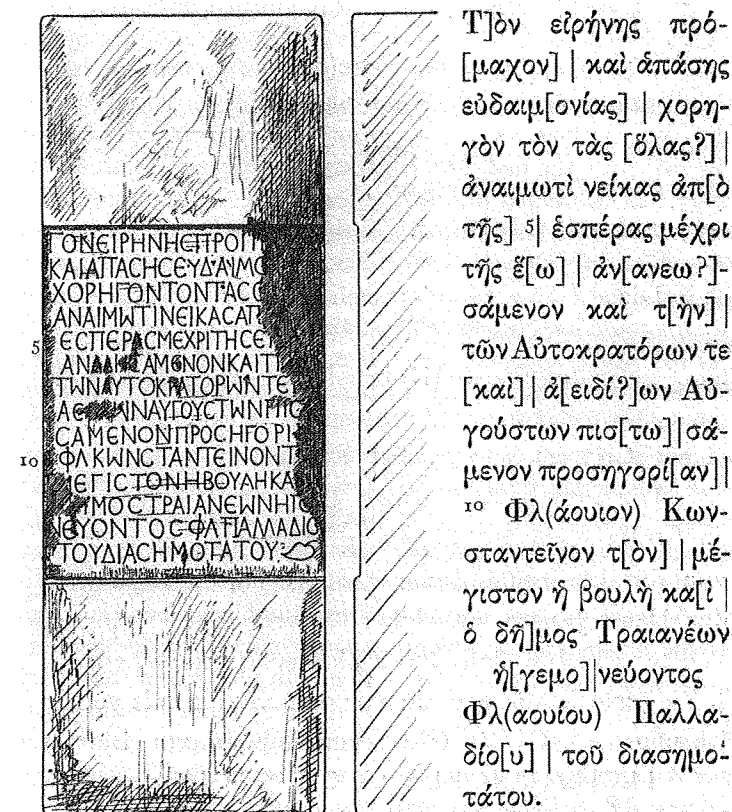 ΤΟΝΕΙΡΗΝΗϹΠΡΟ
ΚΑΙΑΠΑϹΗϹΕΥΔΑΙΜΟ
ΧΟΡΗΓΟΝΤΟΝΤΑϹ
ΑΝΑΙΜΩΤΙΝΕΙΚΑϹΑΠ
5 ΕϹΠΕΡΑϹΜΕΧΡΙΤΗϹΕ
ΑΝ ϹΑΜΕΝΟΝΚΑΙΤ
ΤΩΝΑΥΤΟΚΡΑΤΟΡΩΝΤΕ
Α ΩΝΑΥΓΟΥϹΤΩΝΠΙϹ
ϹΑΜΕΝΟΝΠΡΟϹΗΓΟΡΙ
10 ΦΛΚΩΝϹΤΑΝΤΕΙΝΟΝΤ
ΜΕΓΙϹΤΟΝΗΒΟΥΛΗΚΑ
ΜΟϹΤΡΑΙΑΝΕΩΝΗΓ
ΝΕΥΟΝΤΟϹΦΛΠΑΛΛΑΔΙΟ
ΤΟΥΔΙΑϹΗΜΟΤΑΤΟΥ
Τ]ὸν εἰρήνης πρό-
[μαχον] | καὶ ἁπάσης
εὐδαιμ[ονίας] | χορη-
γὸν τὸν τὰς [ὅλας?] |
ἀναιμωτὶ νείκας ἀπ[ὸ
τῆς] 5| ἑσπέρας μέχρι
τῆς ἕ[ω] | ἀν[ανεω?]-
σάμενον καὶ τ[ὴν] |
τῶν Αὐτοκρατόρων τε
[καὶ] | ἀ[ειδί?]ων Αὐ-
γούστων πισ[τω] | σά-
μενον προσηγορί[αν] |
10 Φλ(άουιον) Κων-
σταντεῖνον τ[ὸν] | μέ-
γιστον ἡ βουλὴ κα[ὶ |
ὁ δῆ]μος Τραιανέων
ἡ[γεμο]|νεύοντος
Φλ(αουίου) Παλλα-
δίο[υ] | τοῦ διασημο-
τάτου.